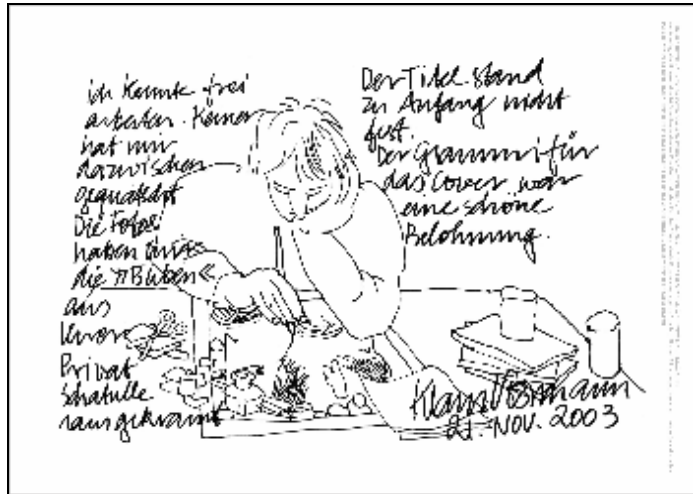 ich konnte frei
arbeiten. Keiner
hat mir
dazwischen
gequatscht
Die Fotos
haben mir
die »Buben«
aus
ihrer
Privat
Schatulle
rausgekramt
Der Titel stand
zu Anfang nicht
fest.
Der Grammy für
das Cover war
eine schöne
Belohnung.
Klaus Voormann
21. NOV. 2003